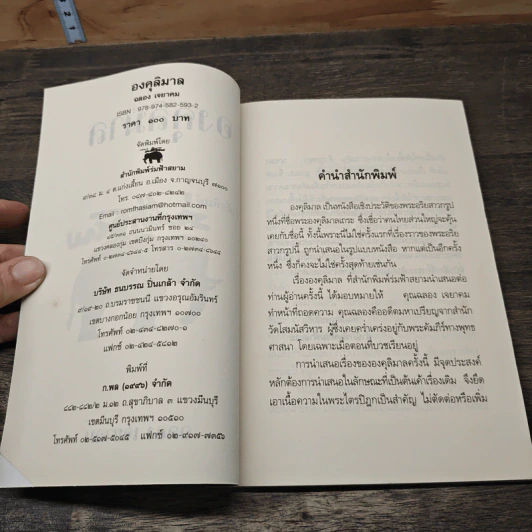 องคุลิมาล
ฉลอง เจยาคม
ISBN : 978-974-582-593-2
ราคา ๑๐๐ บาท
จัดพิมพ์โดย
สำนักพิมพ์ร่มฟ้าสยาม
ม. ๔ ต.แก่งเสี้ยน อ.เมือง จ.กาญจนบุรี ๗๑๐๐๐
Email : romthasiam@hotmail.com
ศูนย์ประสานงานที่กรุงเทพฯ
ถนนนวมินทร์ ซอย ๒๔
แขวงคลองกุ่ม เขตบึงกุ่ม กรุงเทพฯ ๑๐๒๔๐
จัดจำหน่ายโดย
บริษัท ธนบรรณ ปิ่นเกล้า จำกัด
ถ.บรมราชชนนี แขวงอรุณอัมรินทร์
เขตบางกอกน้อย กรุงเทพฯ ๑๐๗๐๐
โทรศัพท์ ๐๒-๔๓๔-๔๒๗๐-๑
แฟกซ์ ๐๒-๔๒๔-๕๘๐๒
พิมพ์ที่
ก.พล (๑๙๙๖) จำกัด
๔๔๒-๔๔๒/๒ ม.๑๒ ถ.สุขาภิบาล ๓ แขวงมีนบุรี
เขตมีนบุรี กรุงเทพฯ ๑๐๕๑๐
โทรศัพท์ ๐๒-๕๑๗-๕๐๔๕ แฟกซ์ ๐๒-๙๑๗-๗๓๕๖
คำนำสำนักพิมพ์
องคุลิมาล เป็นหนังสือเชิงประวัติของพระอริยสาวกรูป
หนึ่งที่ชื่อพระองคุลิมาลเถระ ซึ่งเชื่อว่าคนไทยส่วนใหญ่จะคุ้น
เคยกับชื่อนี้ ทั้งนี้เพราะนี่ไม่ใช่ครั้งแรกที่เรื่องราวของพระอริย
สาวกรูปนี้ ถูกนำเสนอในรูปแบบหนังสือ หากแต่เป็นอีกครั้ง
หนึ่ง ซึ่งก็คงจะไม่ใช่ครั้งสุดท้ายเช่นกัน
เรื่ององคุลิมาล ที่สำนักพิมพ์ร่มฟ้าสยามนำเสนอต่อ
ท่านผู้อ่านครั้งนี้ ได้มอบหมายให้ คุณฉลอง เจยาคม
ทำหน้าที่ถอดความ คุณฉลองคืออดีตมหาเปรียญจากสำนัก
วัดโสมนัสวิหาร ผู้ซึ่งเคยคร่ำเคร่งอยู่กับพระคัมภีร์ทางพุทธ
ศาสนา โดยเฉพาะเมื่อตอนที่บวชเรียนอยู่
การนำเสนอเรื่องขององคุลิมาลครั้งนี้ มีจุดประสงค์
หลักต้องการนำเสนอในลักษณะที่เป็นต้นเค้าเรื่องเดิม จึงยึด
เอาเนื้อความในพระไตรปิฎกเป็นสำคัญ ไม่ตัดต่อหรือเพิ่ม